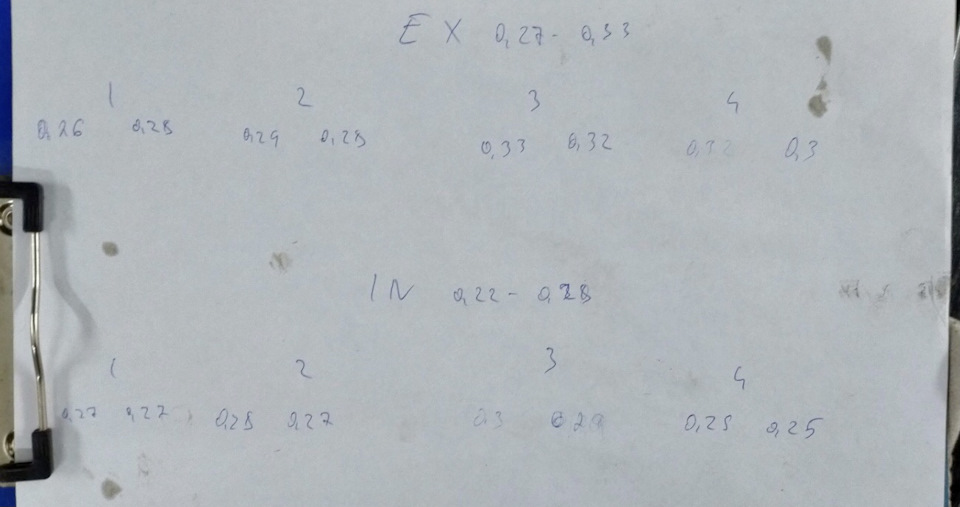 EX 0,27 - 0,33
1 2 3 4
0,26 0,28 0,29 0,28 0,33 0,32 0,32 0,3
IN 0,22 - 0,28
1 2 3 4
0,27 0,27 0,28 0,27 0,3 0,29 0,25